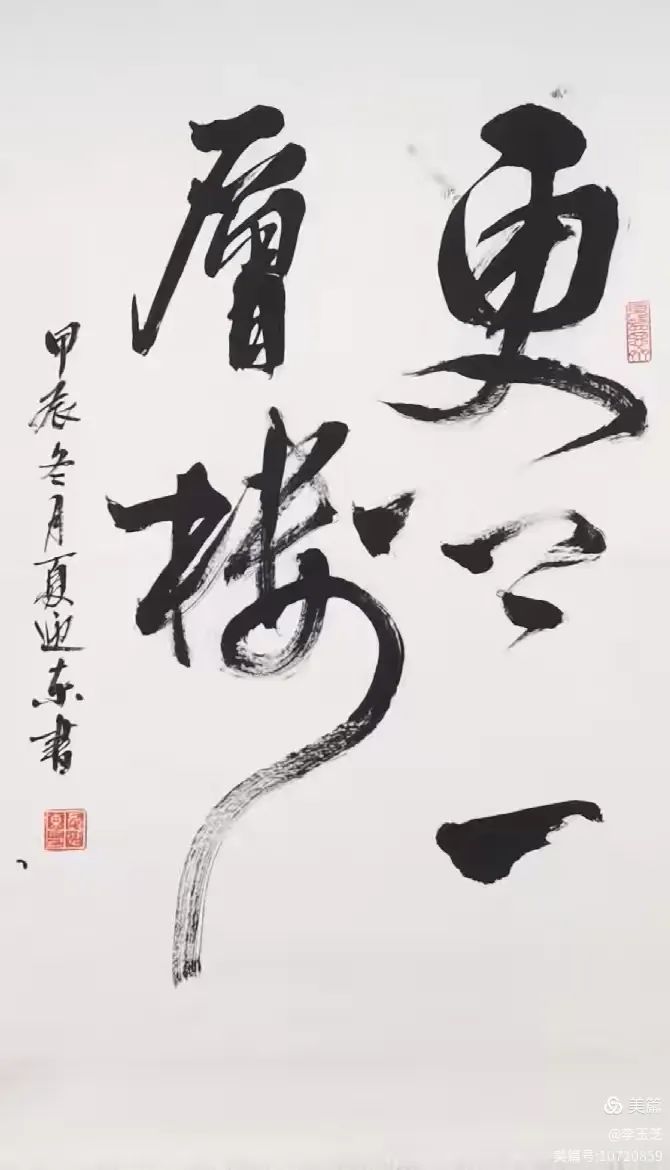 更上一
层楼
甲辰冬月夏迎东书
美篇
@李玉芝
美篇号:10720859